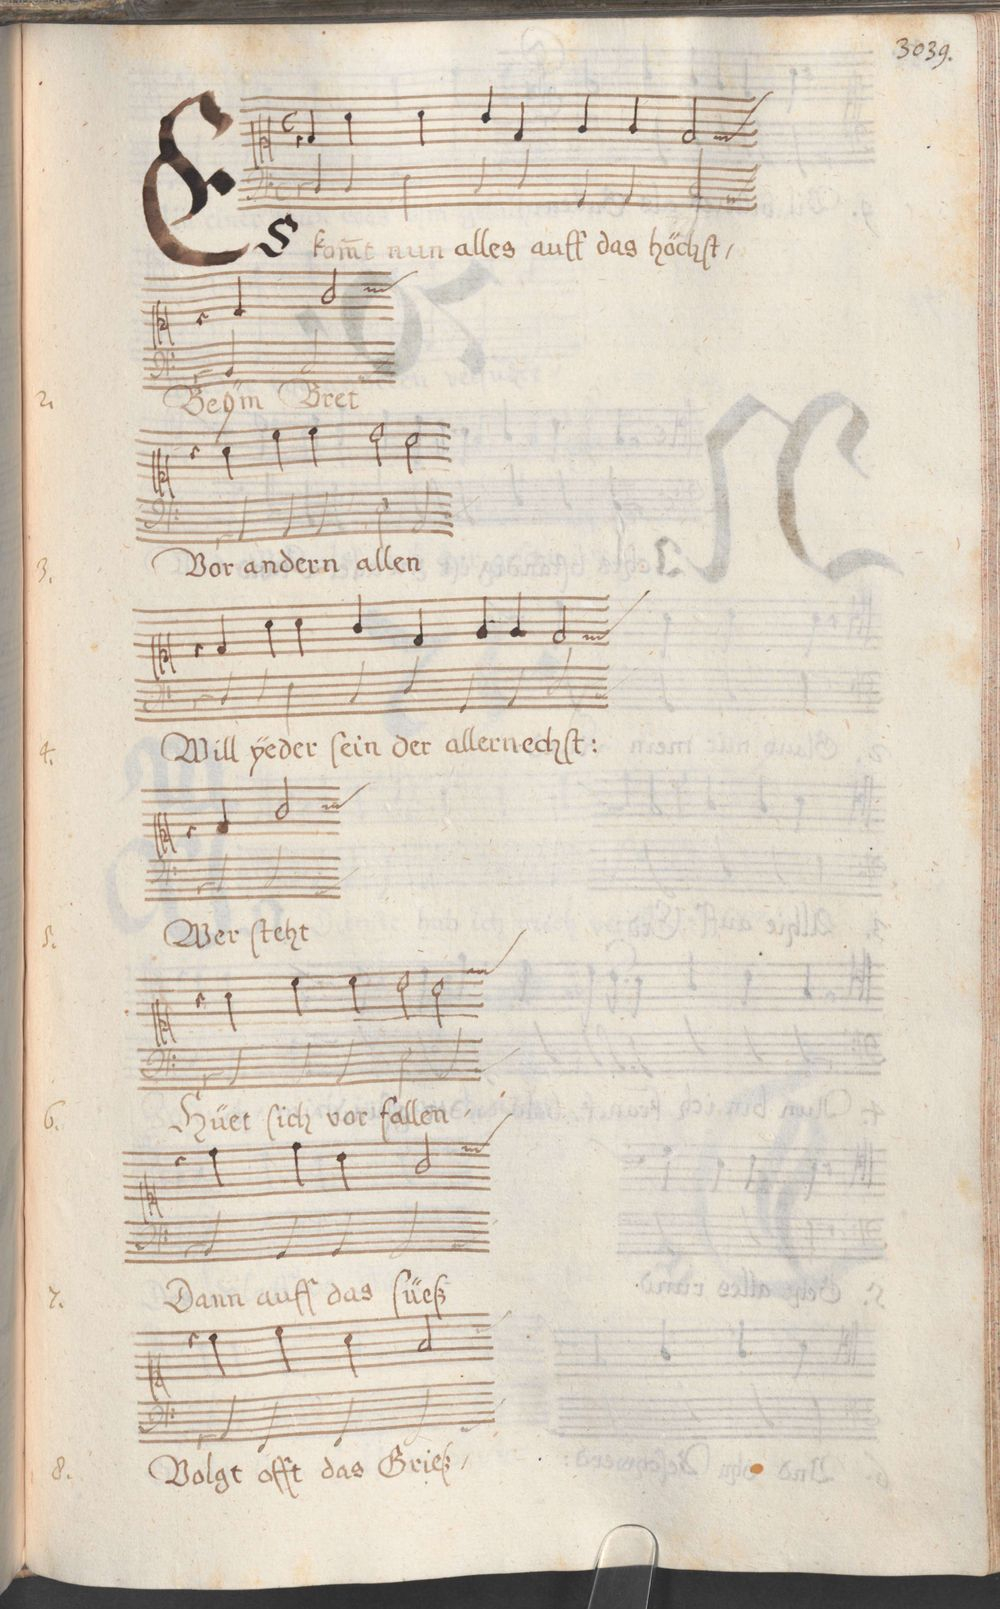 3039.
Es kom̄t nun alles auff das höchst /
2. Beÿm Bret
3. Vor andern allen
4. Will ÿeder sein der allernechst:
5. Wer steht
6. Hüet sich vor fallen /
7. Dann auff das süeß
8. Volgt offt das Grieß /